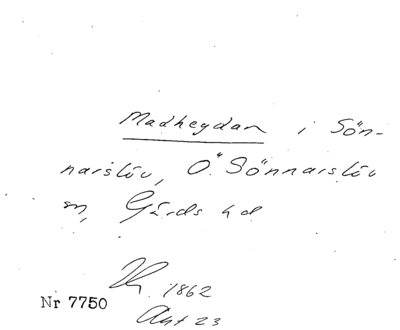 Madheydan i Sön-
narslöv, Ö Sönnarslöv
sn, Gärds hd
1862
Nr 7750
Akt 23